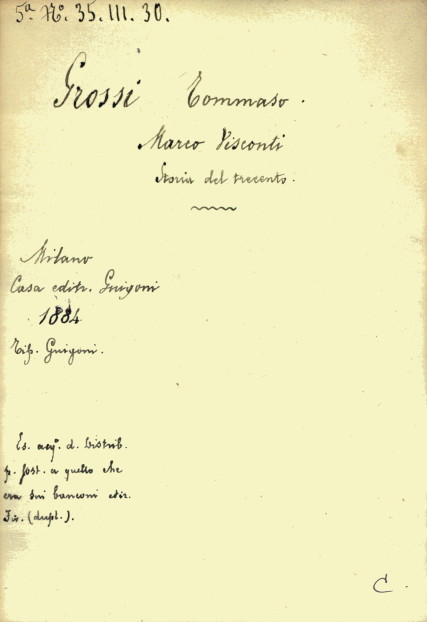 5ª Nº. 35. III. 30.
Grossi Tommaso.
Marco Visconti
Storia del trecento.
Milano
Casa editr. Guigoni
1884
Tip. Guigoni.
Es. acq. d. Distrib.
p. sost. a quello che
era sui banconi
(dupl.).
C.